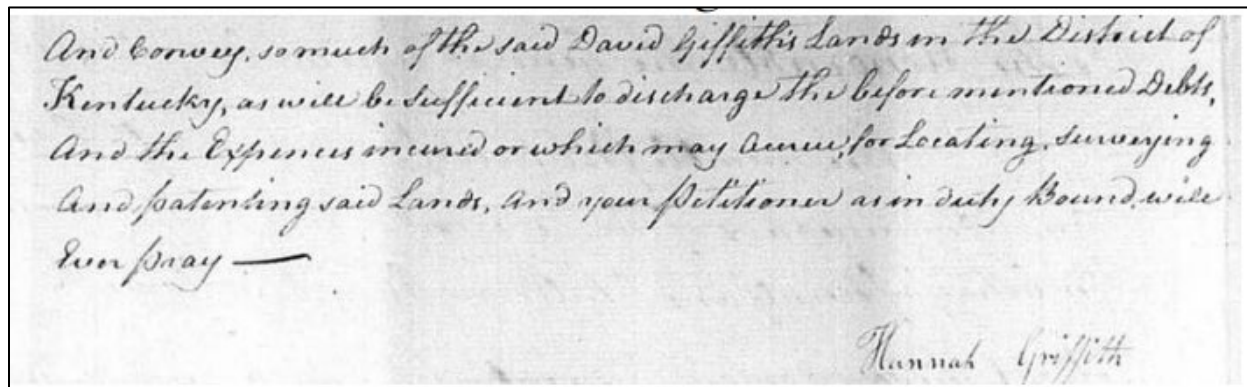 And Convey, so much of the said David Griffith's Lands in the District of
Kentucky, as will be Sufficient to discharge the before mentioned Debts,
And the Expences incured or which may acrue, for Locating, Surveying
And patenting said Lands, And your Petitioner as in duty Bound, will
Ever pray —
Hannah Griffith